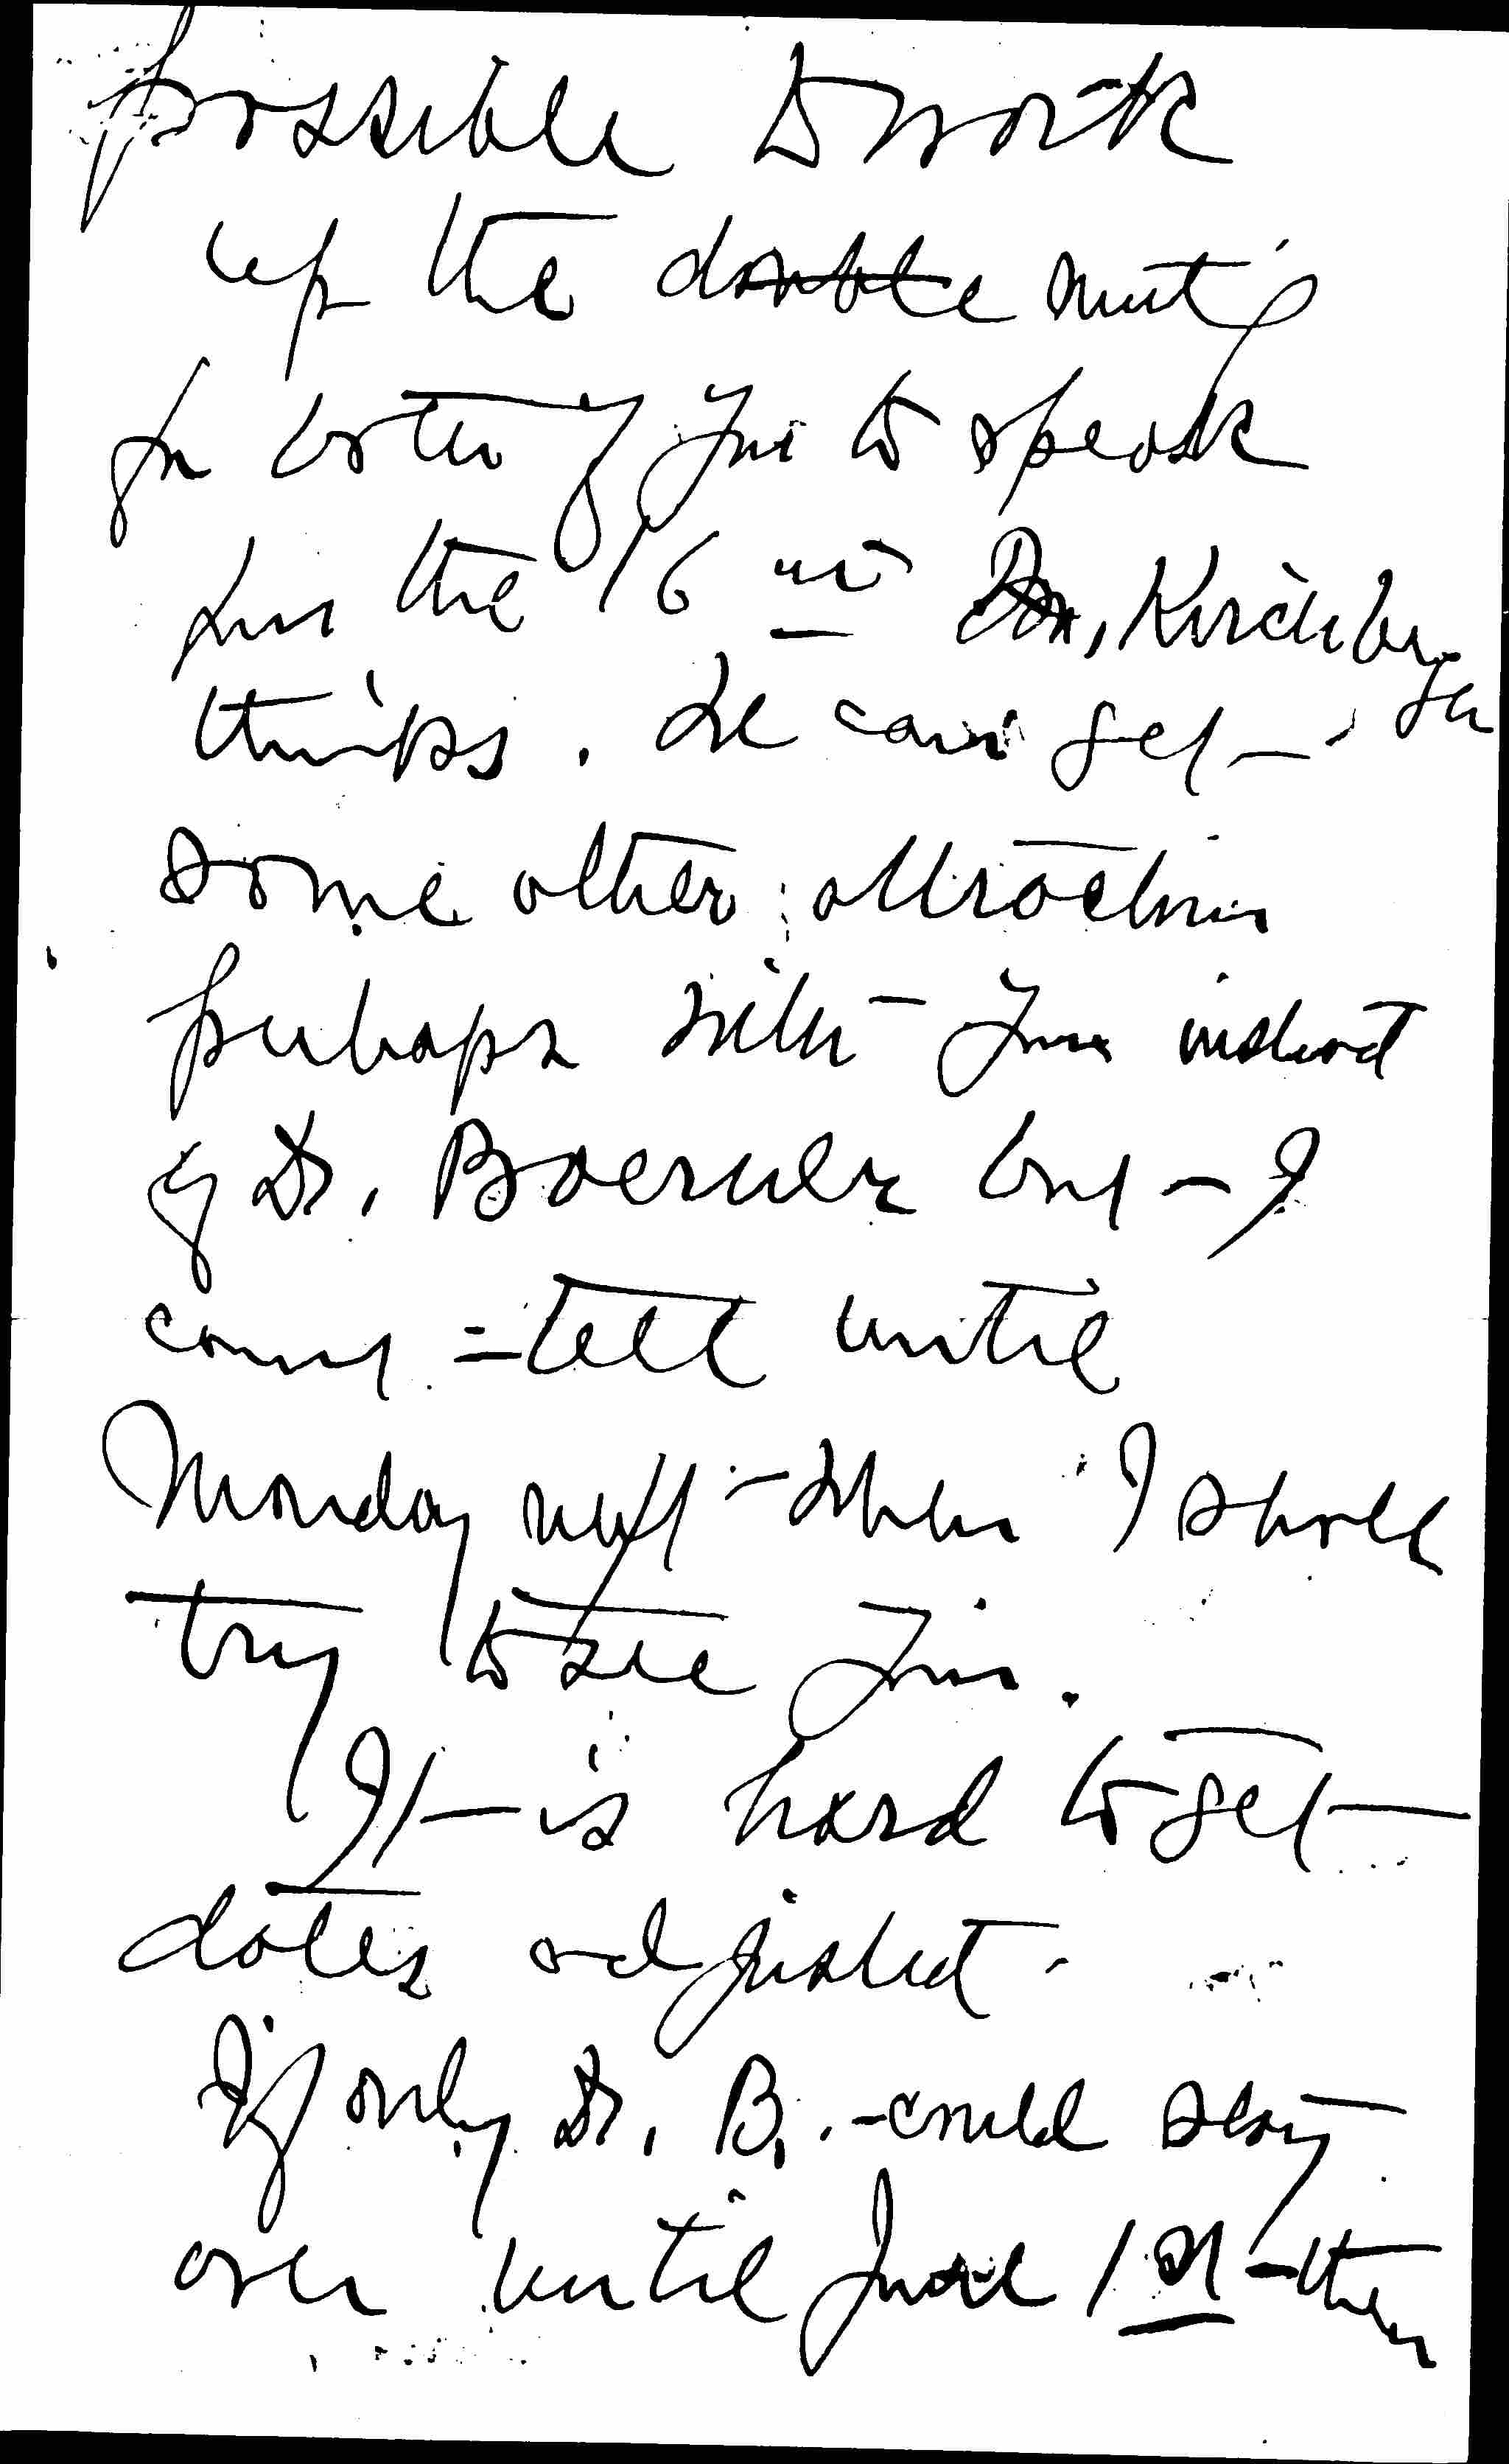 possible to work
up the double meeting
for both of you to speak
on the 16th Dr. Kirchberger
thinks. He can get
some other attraction
perhaps with you instead
of Dr. Boerner but - I
can't tell until
Monday next - when I shall
try to see him.
It is hard to get
dates adjusted.
If only Dr. B. - could stay
over until June 1st - then